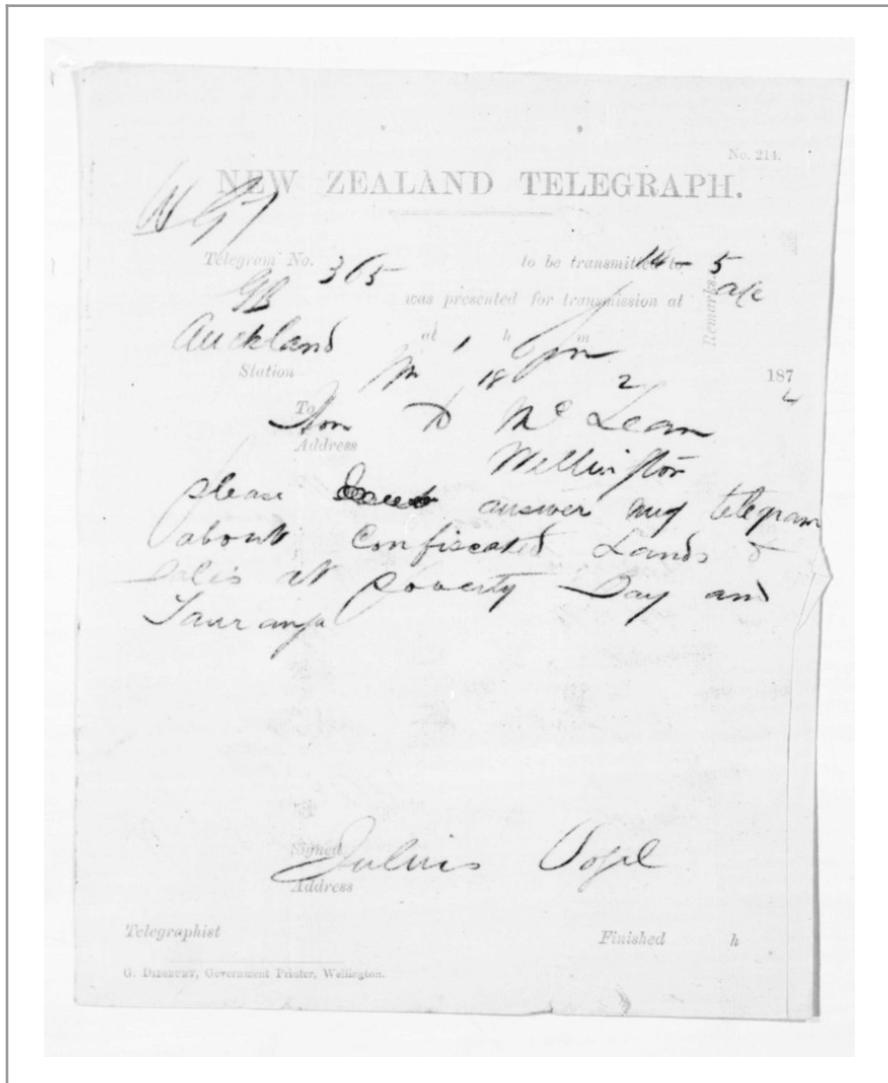 No. 214.
NEW ZEALAND TELEGRAPH.
Telegram No. 365 to be transmitted to 14 - 5
was presented for transmission at
Remarks.
Auckland at 1 h m
Station 18 2 187
To Hon D McLean
Address
Wellington
please answer my telegram
about Confiscated Lands &
Sales at poverty Bay and
Tauranga
Signed Julius Vogel
Address
Telegraphist Finished h
G. DIDSBURY, Government Printer, Wellington.